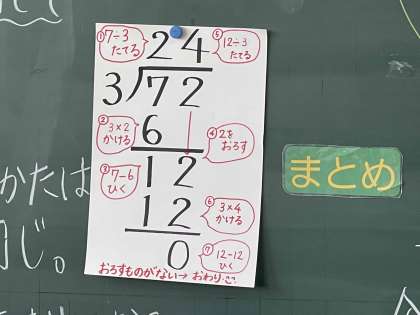 ①7÷3
たてる
24
⑤12÷3
たてる
3)72
②3×2
かける
6
④2を
おろす
③7-6
ひく
12
12
⑥3×4
かける
0
⑦12-12
ひく
おろすものがない→おわり
まとめ
かたは
同じ。